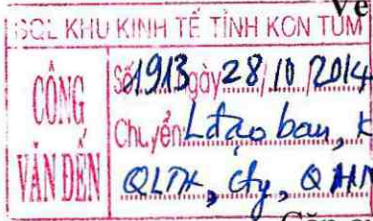 Về
BQL KHU KINH TẾ TỈNH KON TUM
CÔNG VĂN ĐẾN
Số 1913 ngày 28/10/2014
Chuyển: Lđạo ban, K
QLTN, cty, QHN